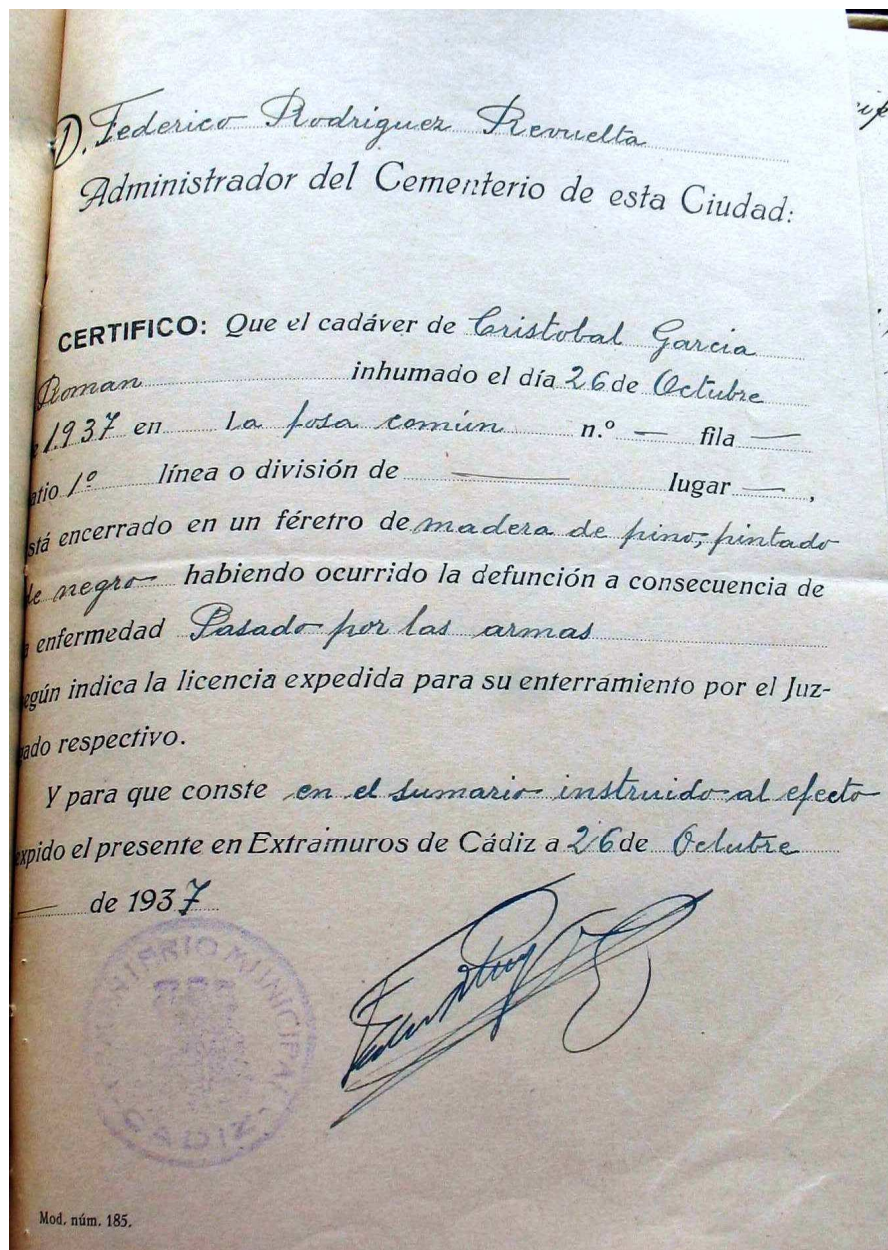 D. Federico Rodriguez Revuelta
Administrador del Cementerio de esta Ciudad:
CERTIFICO: Que el cadáver de Cristobal Garcia
Roman inhumado el día 26 de Octubre
e 1.937 en La fosa común n.º — fila —
atio 1º línea o división de — lugar —,
stá encerrado en un féretro de madera de pino, pintado
de negro habiendo ocurrido la defunción a consecuencia de
a enfermedad Pasado por las armas
egún indica la licencia expedida para su enterramiento por el Juz-
gado respectivo.
Y para que conste en el sumario instruido al efecto
expido el presente en Extramuros de Cádiz a 26 de Octubre
— de 1937
CEMENTERIO MUNICIPAL
CADIZ
Mod. núm. 185.